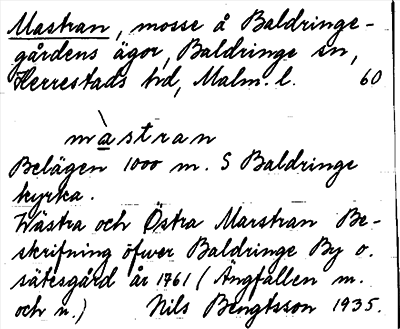 Mastran, mosse å Baldringe-
gårdens ägor, Baldringe sn,
Herrestads hd, Malm. l. 60
màstran
Belägen 1000 m. S Baldringe
kyrka.
Wästra och Östra Marstran Be-
skrifning öfwer Baldringe By o.
sätesgård år 1761 (Angfallen m.
och n.) Nils Bengtsson 1935.